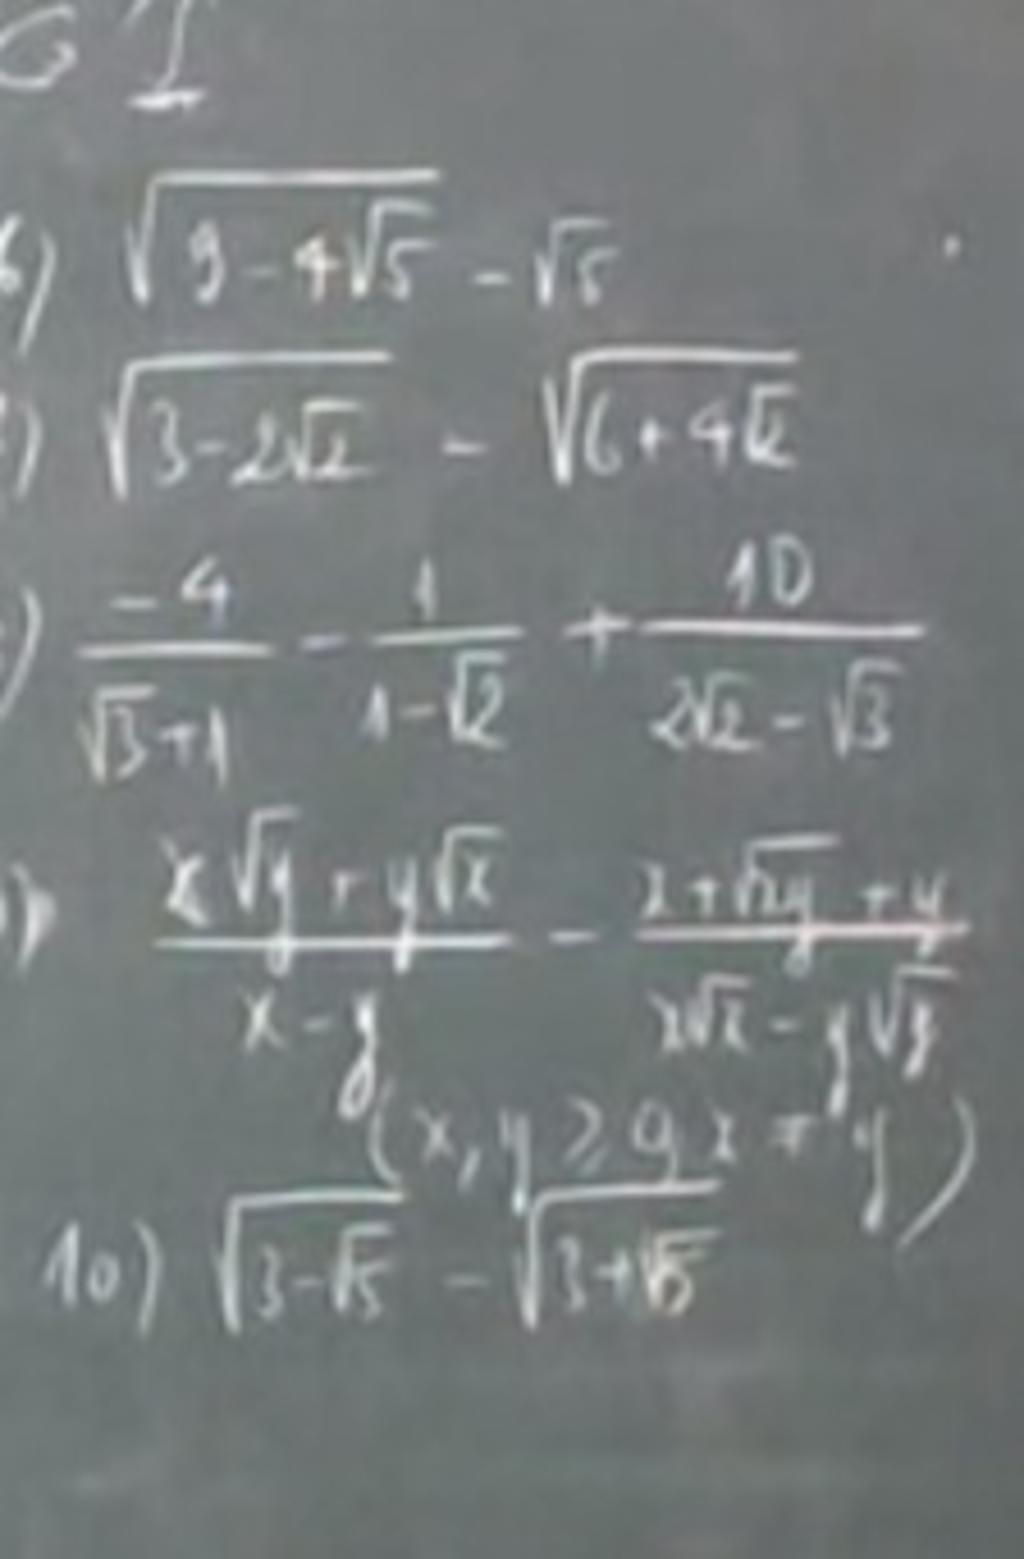 G I
6) √(9 - 4√5) - √5
) √(3 - 2√2) - √(6 + 4√2)
) -4/(√3 + 1) - 1/(1 - √2) + 10/(2√2 - √3)
) (x√y + y√x)/(x - y) - (x + √(xy) + y)/(x√x - y√y)
(x, y ≥ 0, x ≠ y)
10) √(3 - √5) - √(3 + √5)